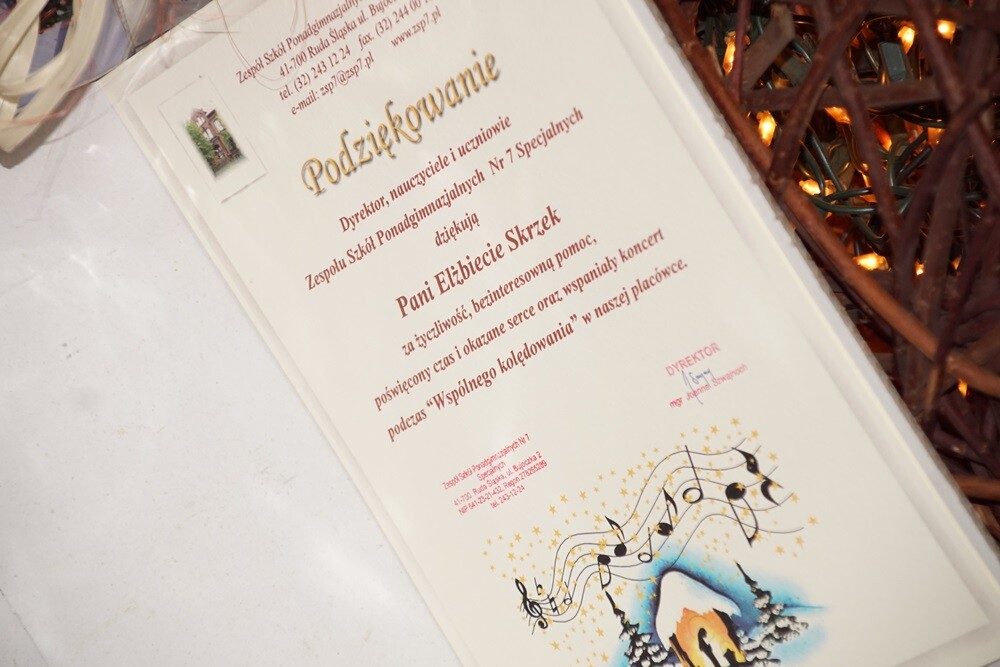 Zespół Szkół Ponadgimnazjalnych
41-700 Ruda Śląska ul. Bujoczka
tel. (32) 243 12 24 fax. (32) 244 00
e-mail: zsp7@zsp7.pl www.zsp7.pl
Podziękowanie
Dyrektor, nauczyciele i uczniowie
Zespołu Szkół Ponadgimnazjalnych Nr 7 Specjalnych
dziękują
Pani Elżbiecie Skrzek
za życzliwość, bezinteresowną pomoc,
poświęcony czas i okazane serce oraz wspaniały koncert
podczas “Wspólnego kolędowania” w naszej placówce.
DYREKTOR
mgr Joanna Szwajnoch
Zespół Szkół Ponadgimnazjalnych Nr 7
Specjalnych
41-700 Ruda Śląska, ul. Bujoczka 2
NIP 641-23-21-432, Regon 276265289
tel. 243-12-24